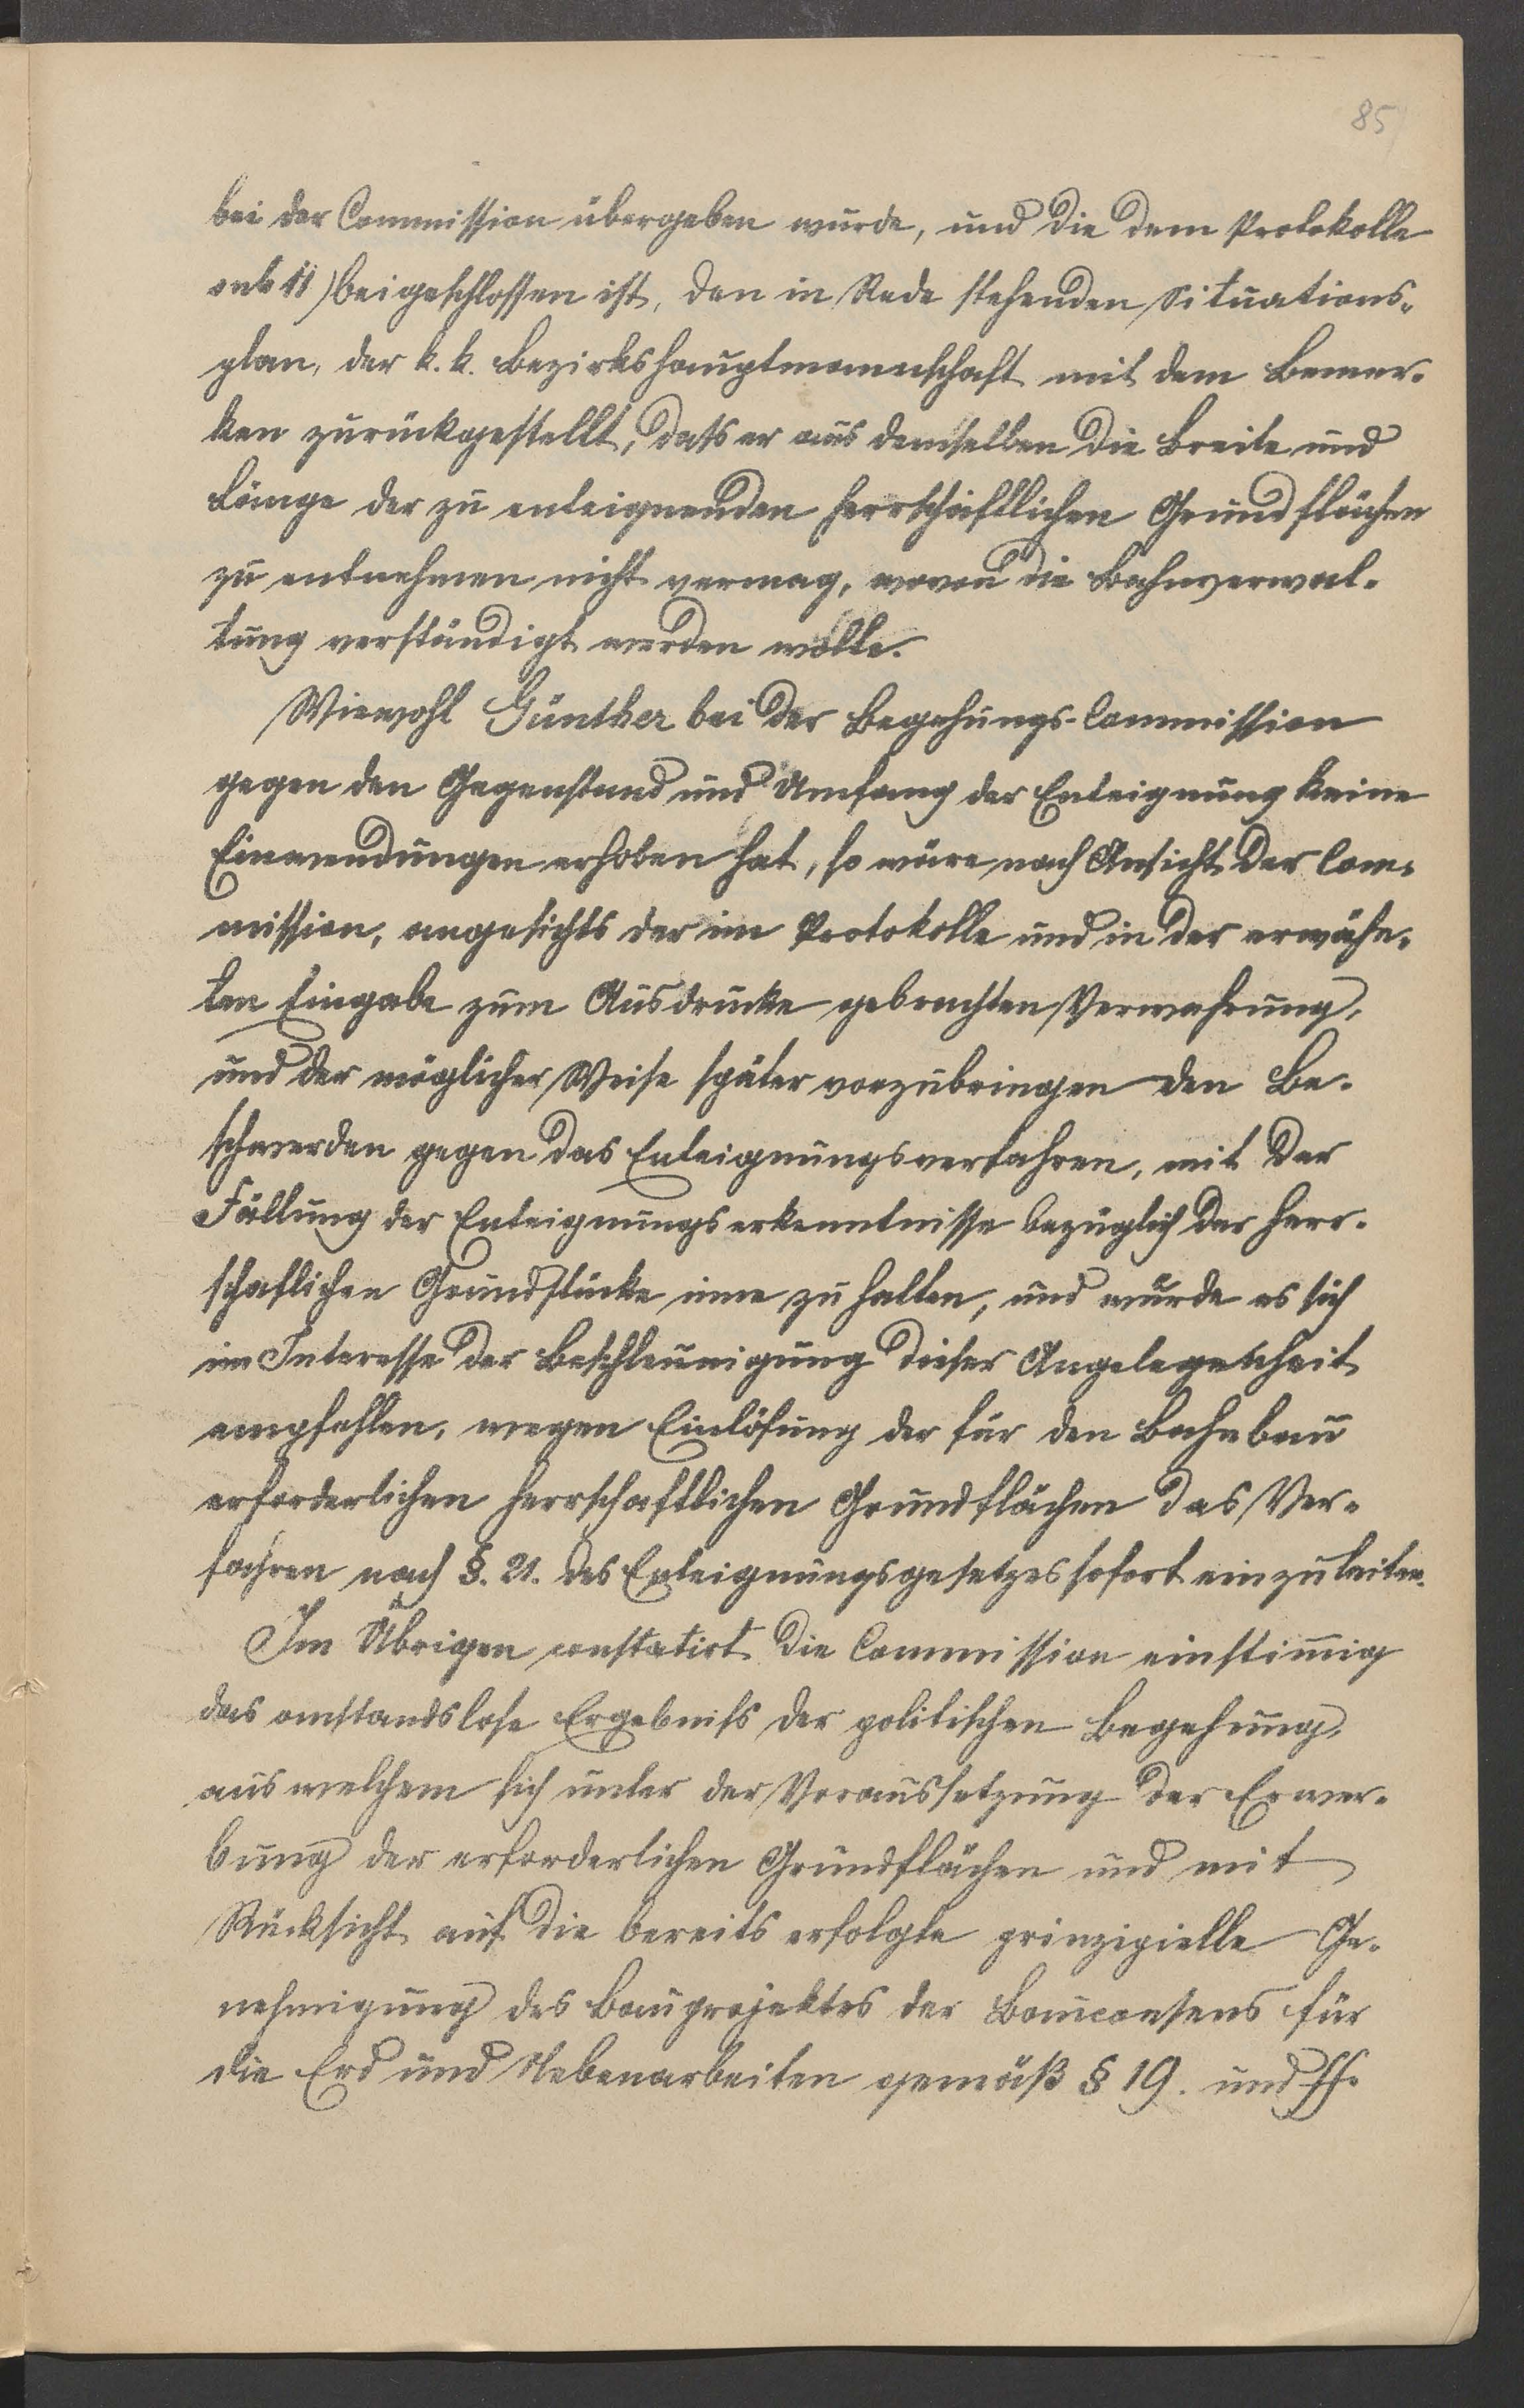 85
bei der Commission übergeben wurde, und die dem Protokolle
sub 11) beigeschlossen ist, den in Rede stehenden Situations-
plan, der k. k. Bezirkshauptmannschaft mit dem Bemer-
ken zurückgestellt, dass er aus demselben die Breite und
Länge der zu enteignenden herrschaftlichen Grundflächen
zu entnehmen nicht vermag, wovon die Bahnverwal-
tung verständigt werden wolle.
Wiewohl Günther bei der Begehungs-Commission
gegen den Gegenstand und Umfang der Enteignung keine
Einwendungen erhoben hat, so wäre nach Ansicht der Com-
mission, angesichts der im Protokolle und in der erwähn-
ten Eingabe zum Ausdrucke gebrachten Verwahrung,
und der möglicher Weise später vorzubringen den Be-
schwerden gegen das Enteignungsverfahren, mit der
Fällung der Enteignungserkenntnisse bezüglich der herr-
schaftlichen Grundstücke inne zu halten, und würde es sich
im Interesse der Beschleunigung dieser Angelegenheit
empfehlen, wegen Einlösung der für den Bahnbau
erforderlichen herrschaftlichen Grundflächen das Ver-
fahren nach §. 21. des Enteignungsgesetzes sofort einzuleiten.
Im Übrigen constatirt die Commission einstimmig
das anstandslose Ergebniss der politischen Begehung,
aus welchem sich unter der Voraussetzung der Erwer-
bung der erforderlichen Grundflächen und mit
Rücksicht auf die bereits erfolgte prinzipielle Ge-
nehmigung des Bauprojektes der Bauconsens für
die Erd und Nebenarbeiten gemäß § 19. und ff.